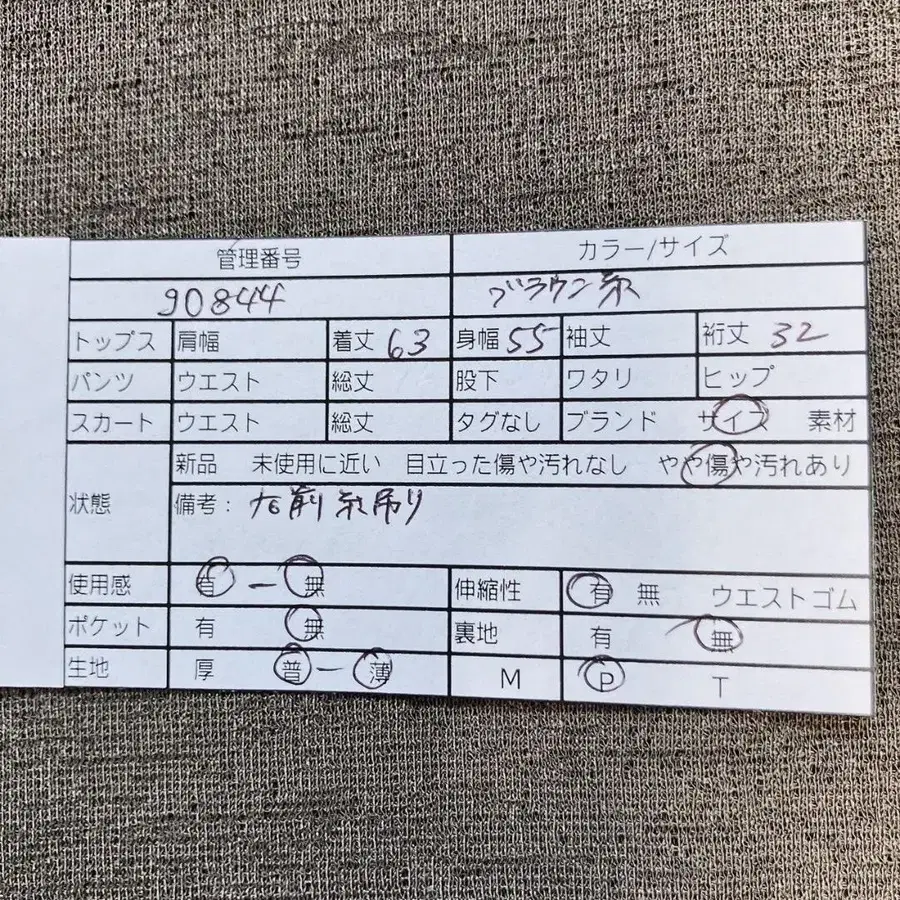 管理番号 カラー/サイズ
90844 ブラウン系
トップス 肩幅 着丈 63 身幅 55 袖丈 裄丈 32
パンツ ウエスト 総丈 股下 ワタリ ヒップ
スカート ウエスト 総丈 タグなし ブランド サイズ 素材
状態 新品 未使用に近い 目立った傷や汚れなし やや傷や汚れあり
備考: 右前 糸吊り
使用感 有 ー 無 伸縮性 有 無 ウエストゴム
ポケット 有 無 裏地 有 無
生地 厚 普 ー 薄 M P T